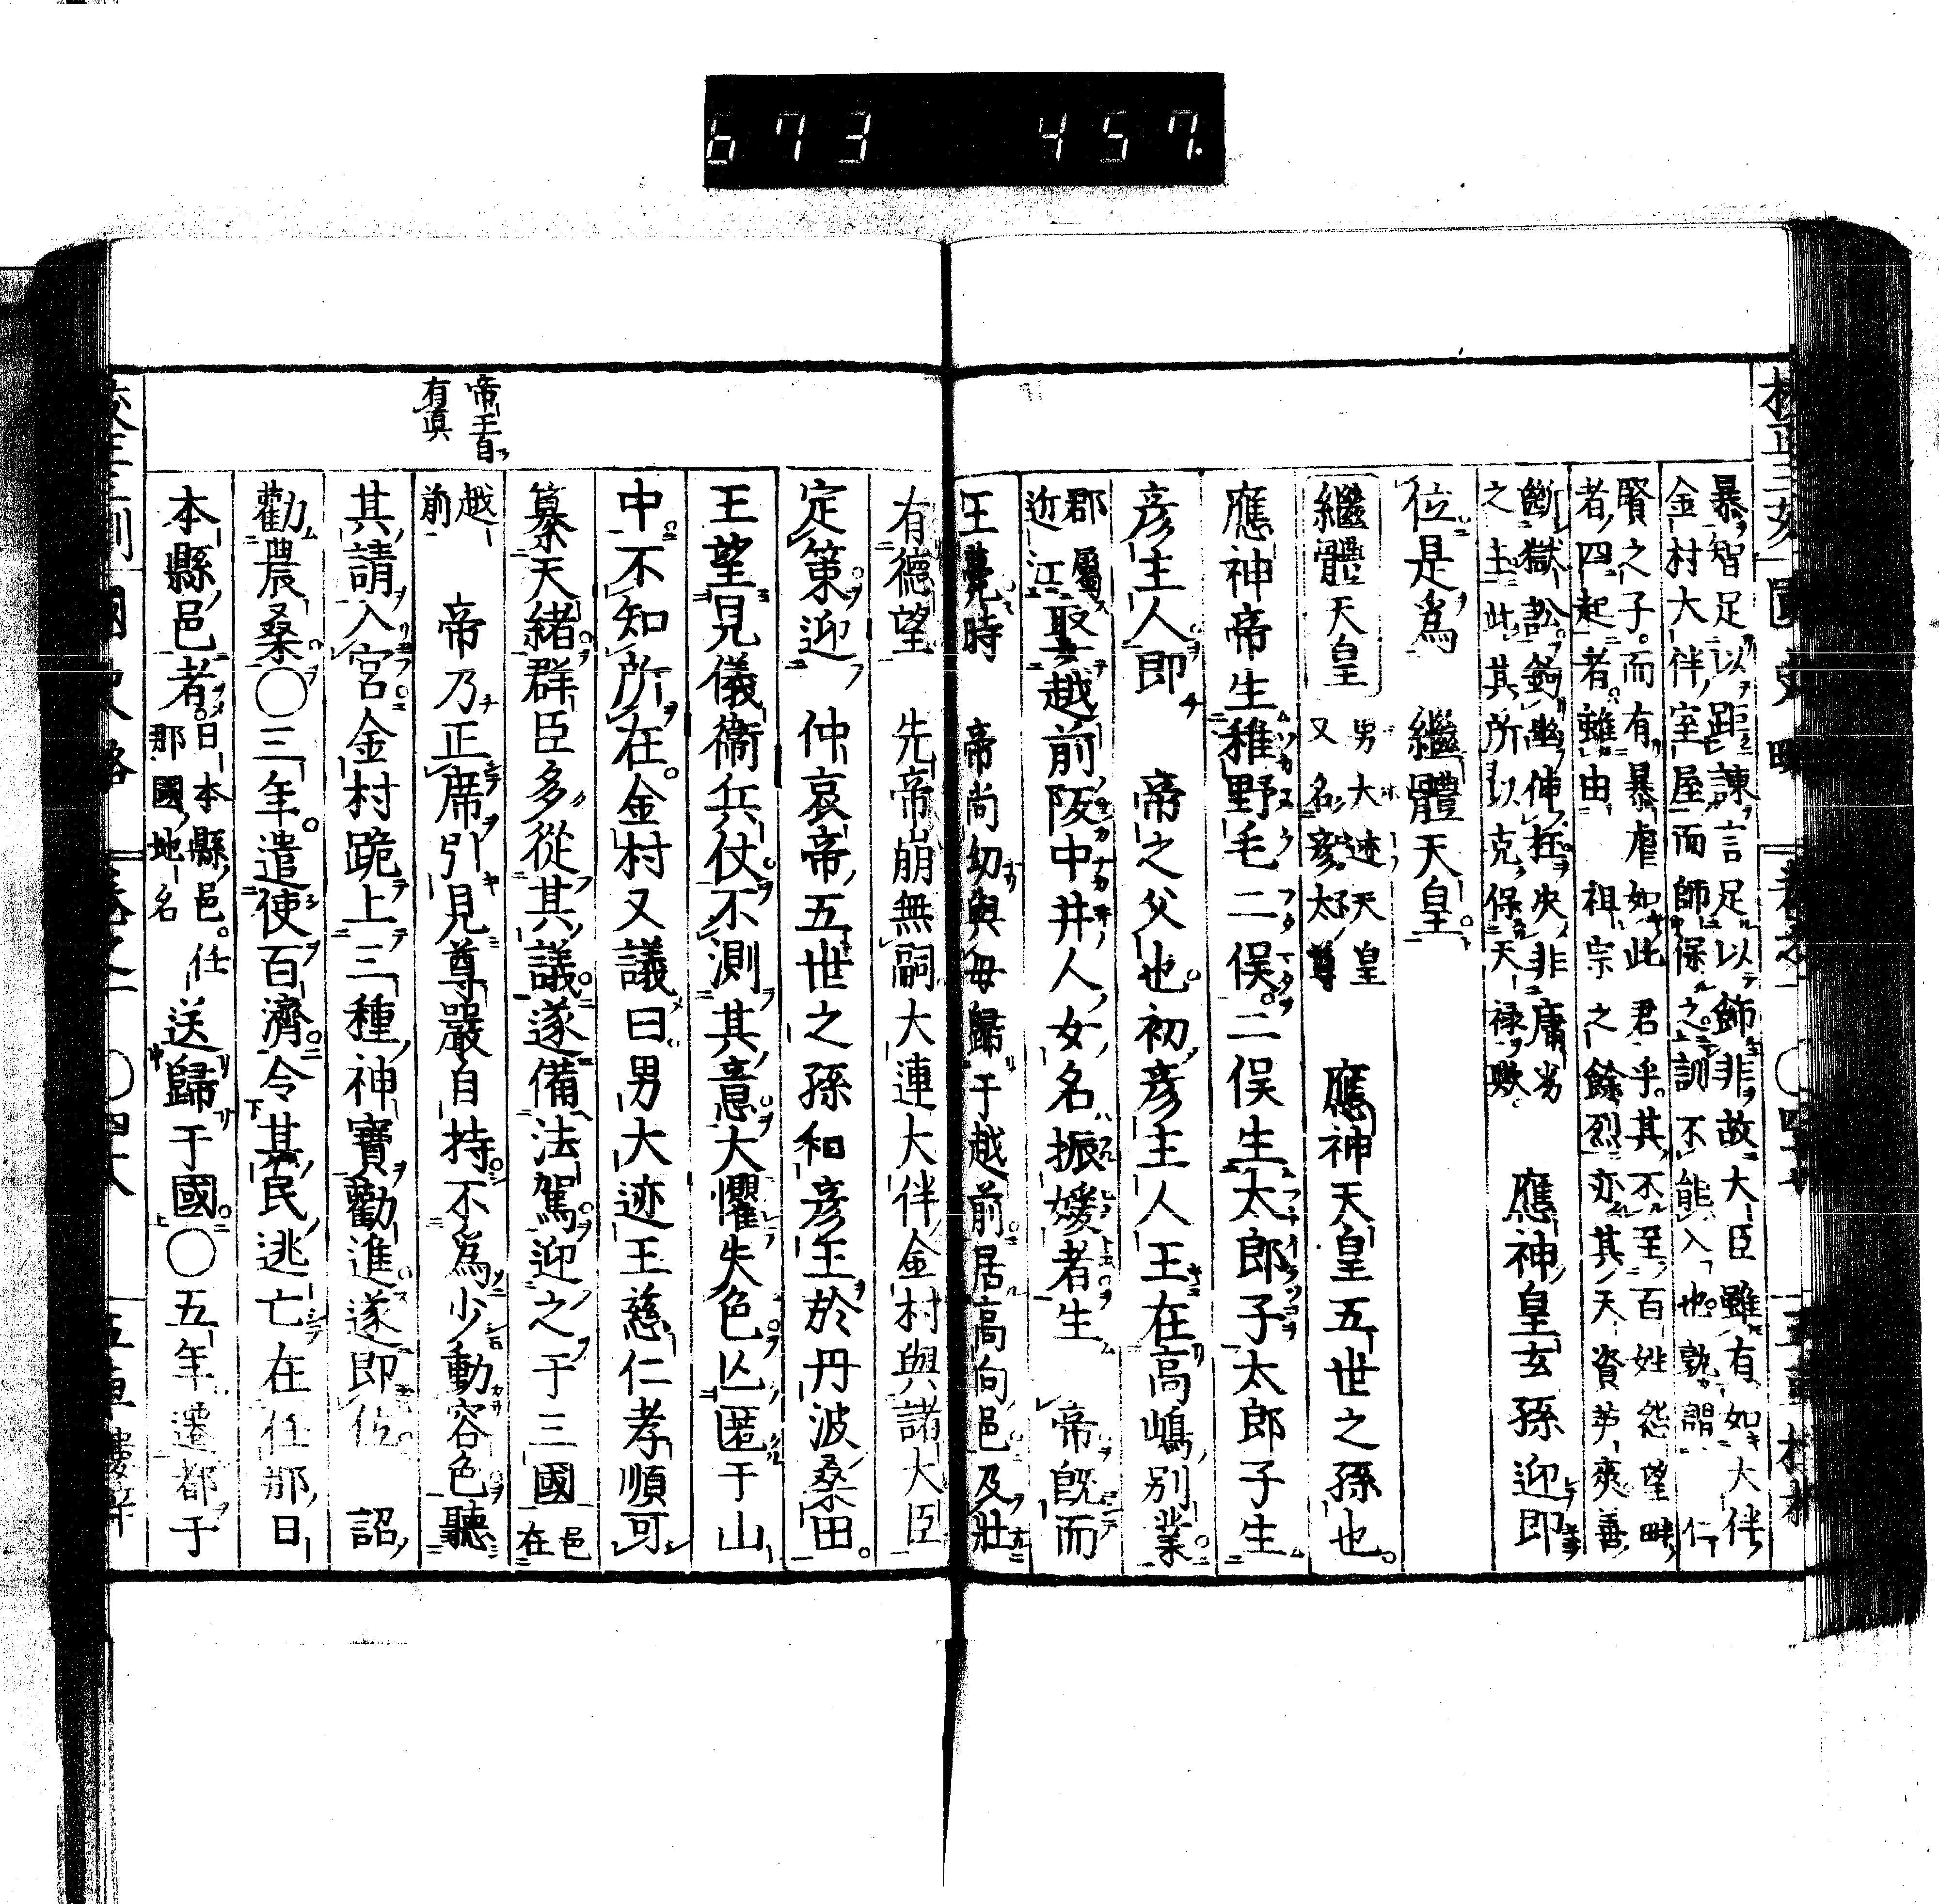 673 457.
暴智足以距諫言足以飾非故大臣雖有如大伴
金村大伴室屋而師保之訓不能入也孰謂仁
賢之子而有暴虐如此君乎其不至百姓怨望畔
者四起者雖由祖宗之餘烈亦其天資英爽善
斷獄訟鉤幽伸枉决非庸劣
之主此其所以克保天禄歟
應神皇玄孫迎即
位是爲繼體天皇
繼體天皇
男大迹天皇
又名彦太尊
應神天皇五世之孫也
應神帝生稚野毛二俣二俣生太郎子太郎子生
彦主人即帝之父也初彦主人王在高嶋別業
郡屬
近江
娶越前阪中井人女名振媛者生帝旣而
王薨時帝尚幼與母歸于越前居高向邑及壯
有德望先帝崩無嗣大連大伴金村與諸大臣
定策迎仲哀帝五世之孫和彦王於丹波桑田
王望見儀衞兵仗不測其意大懼失色亾匿于山
中不知所在金村又議曰男大迹王慈仁孝順可
纂天緒群臣多從其議遂備法駕迎之于三國
邑在
越前
帝乃正席引見尊嚴自持不為少動容色聽
帝王自
有眞
其請入宮金村跪上三種神寶勸進遂即位詔
勸農桑〇三年遣使百濟令其民逃亡在任那日
本縣邑者
日本縣邑任
那國地名
送歸于國〇五年遷都于